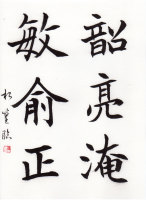 韶亮淹
敏俞正